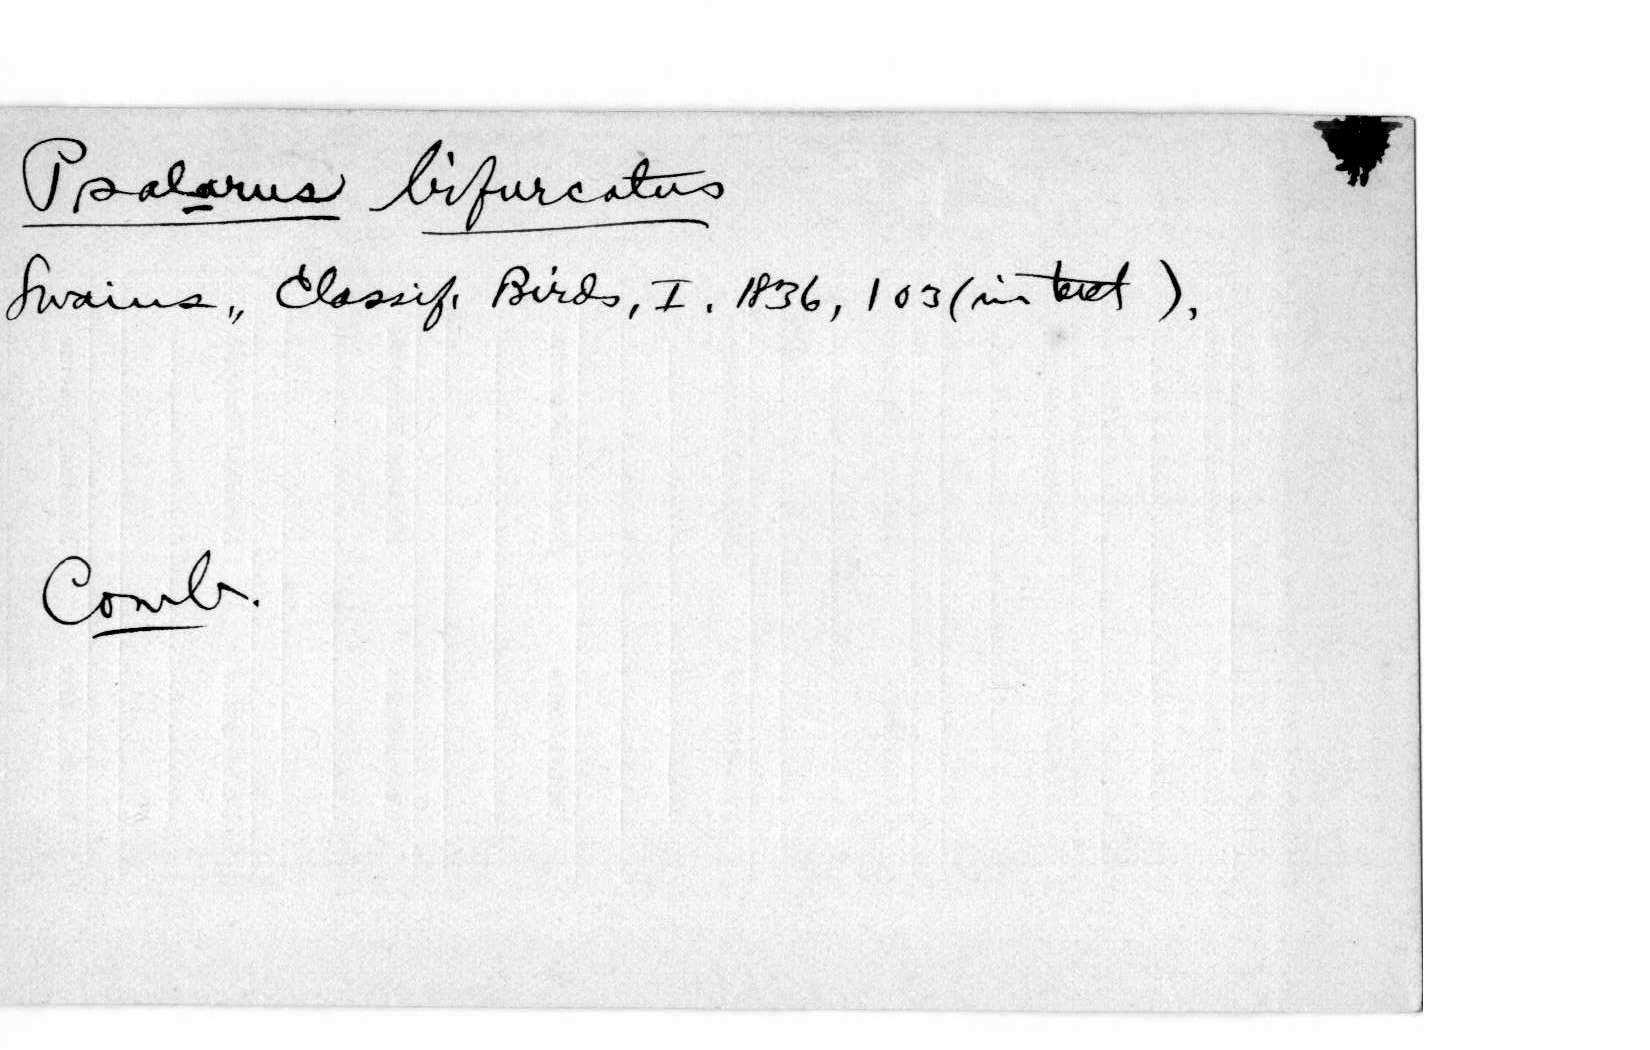 Psalarus bifurcatus
Swains., Classif. Birds, I. 1836, 103 (in text),
Comb.